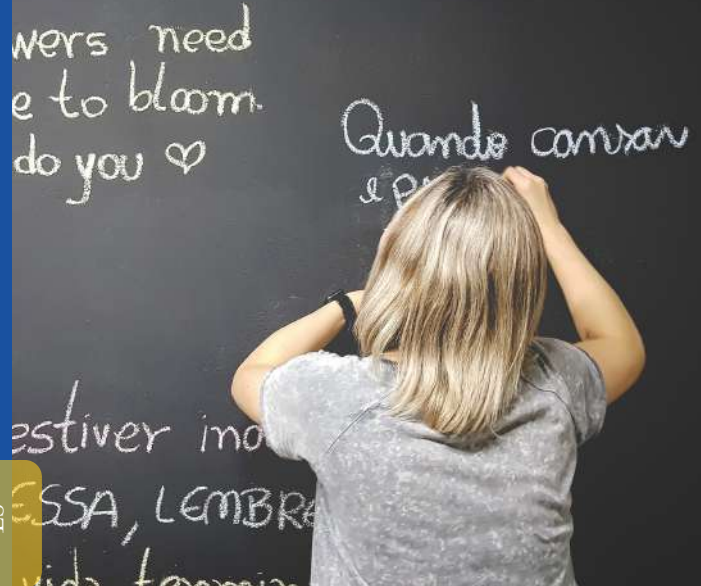 wers need
e to bloom.
do you ♡
Quando cansar
e
estiver ino
ESSA, LEMBRE
vida termin